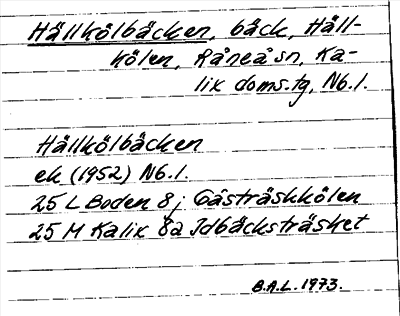 Hällkölbäcken, bäck, Häll-
kölen, Råneå sn, Ka-
lix doms.tg, Nb.l.
Hällkölbäcken
ek (1952) Nb.l.
25 L Boden 8 j Gåsträskkölen
25 M Kalix 8a Idbäcksträsket
B.A.L. 1973.